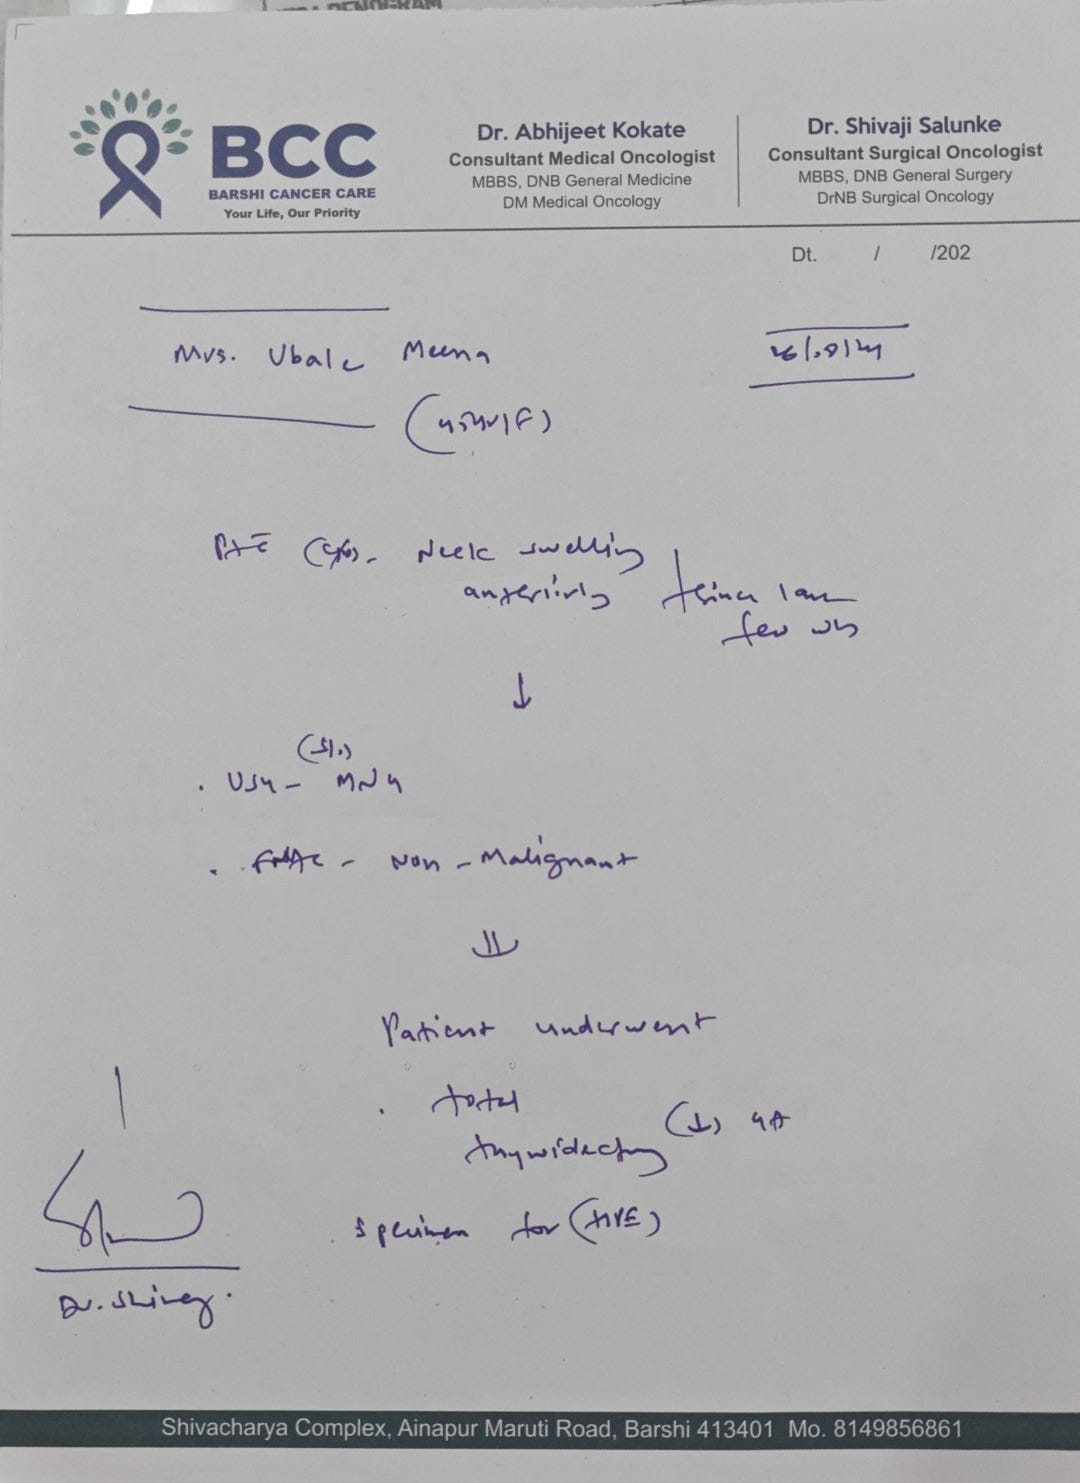 BCC
BARSHI CANCER CARE
Your Life, Our Priority
Dr. Abhijeet Kokate
Consultant Medical Oncologist
MBBS, DNB General Medicine
DM Medical Oncology
Dr. Shivaji Salunke
Consultant Surgical Oncologist
MBBS, DNB General Surgery
DrNB Surgical Oncology
Dt. / /202
Mrs. Ubale Meena
Neck swelling
anteriorly since
few
↓
. USG - MNG
. FNAC - Non-Malignant
⇓
Patient underwent
. total
thyroidectomy GA
Specimen for (HPE)
Dr. Shivaji.
Shivacharya Complex, Ainapur Maruti Road, Barshi 413401 Mo. 8149856861